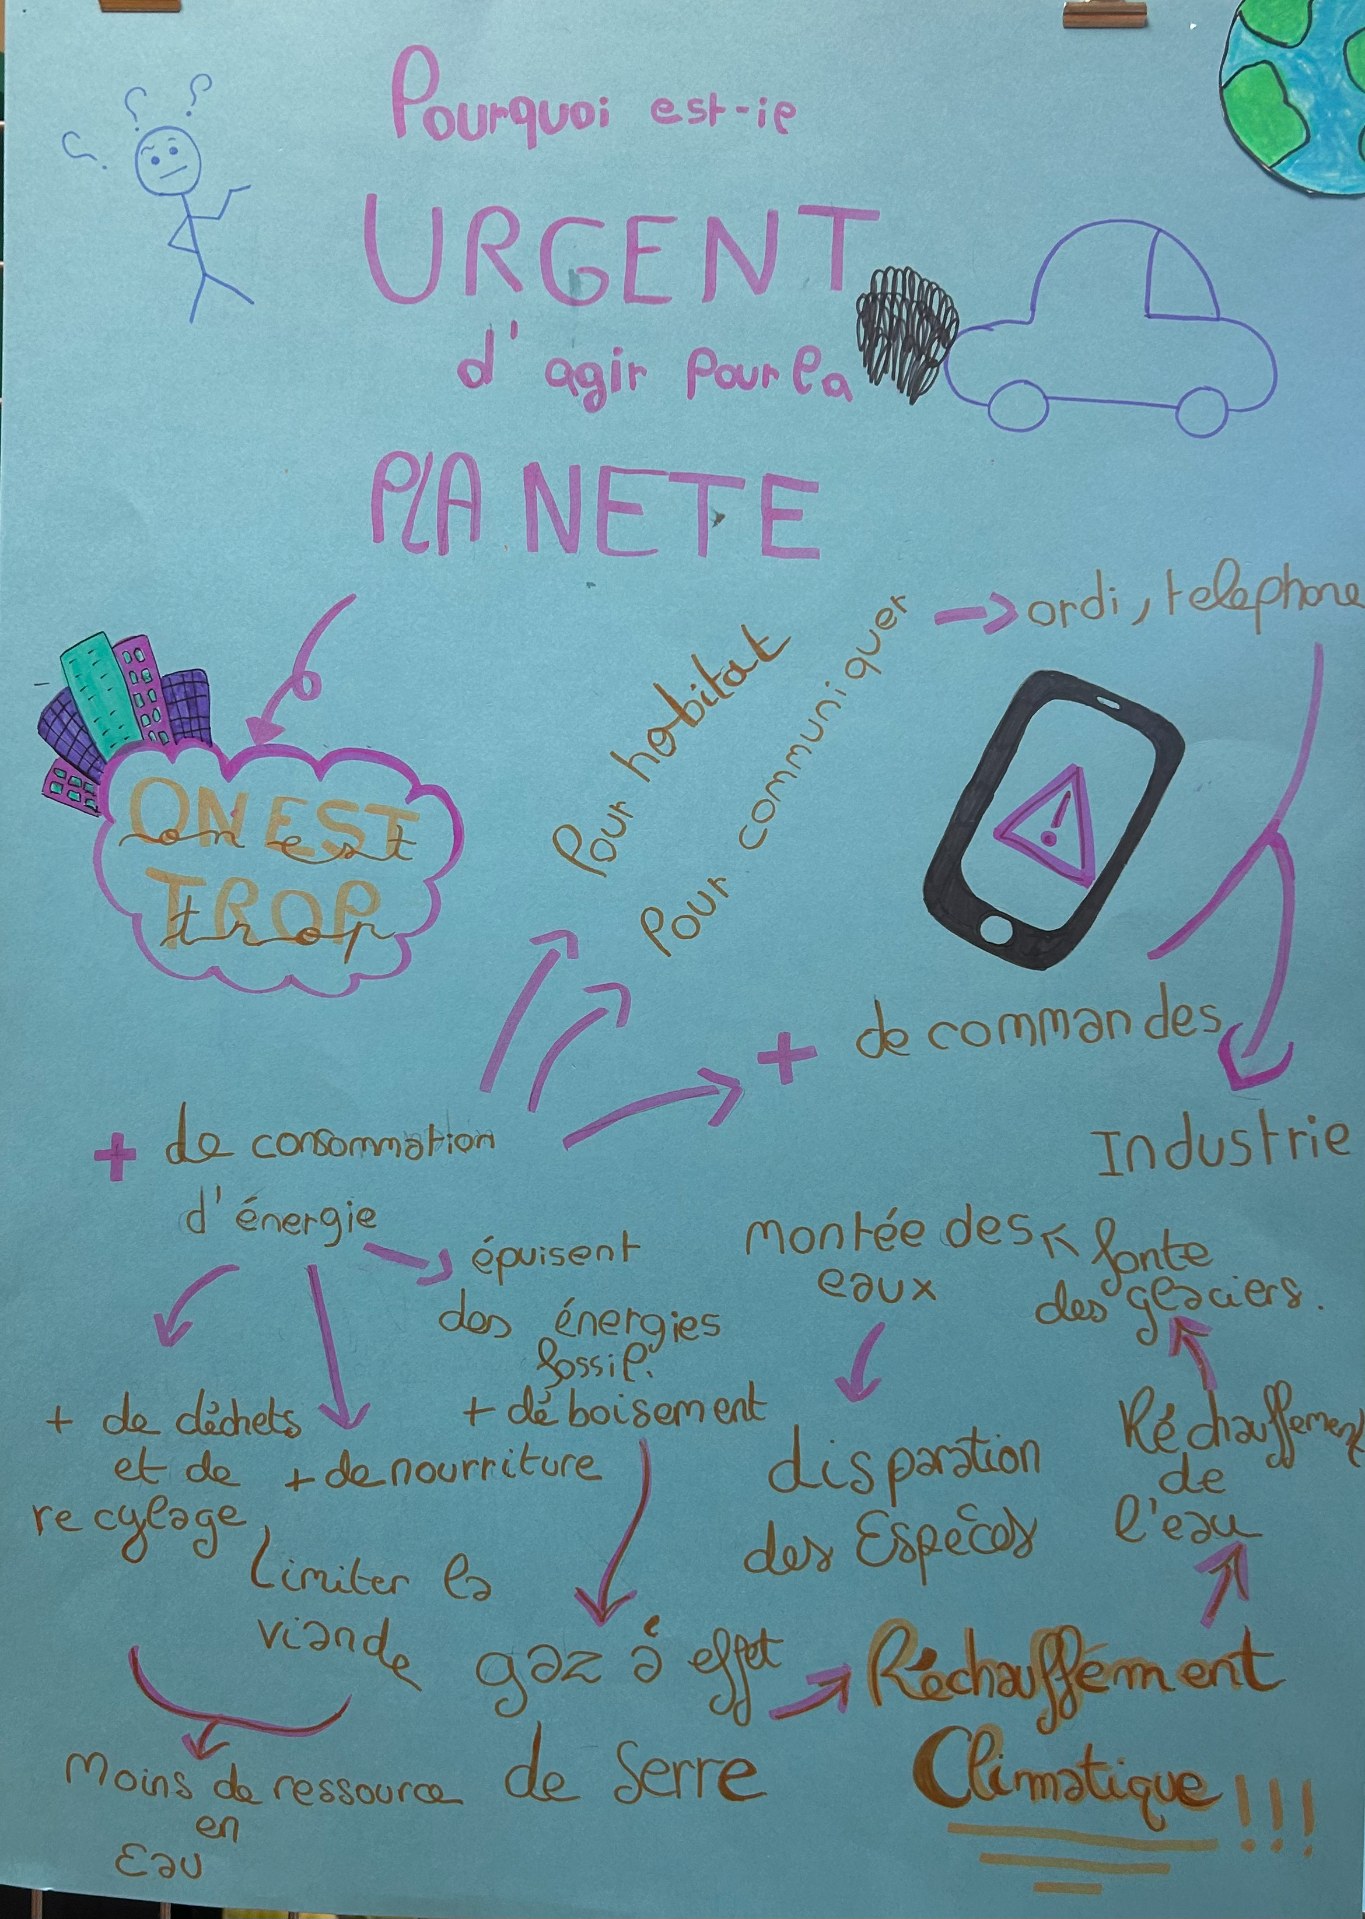 Pourquoi est-ie
URGENT
d'agir pour la
PLANETE
ON EST
on est
TROP
trop
Pour habitat
Pour communiquer
ordi, telephone
+ de commandes
Industrie
+ de consommation
d'énergie
épuisent
des énergies
fossil.
+ déboisement
+ de déchets
et de
recylage
+ de nourriture
Limiter la
viande
Moins de ressource
en
Eau
gaz à effet
de Serre
Réchauffement
Climatique !!!
Réchauffement
de
l'eau
fonte
des glaciers.
montée des
eaux
disparation
des Espèces